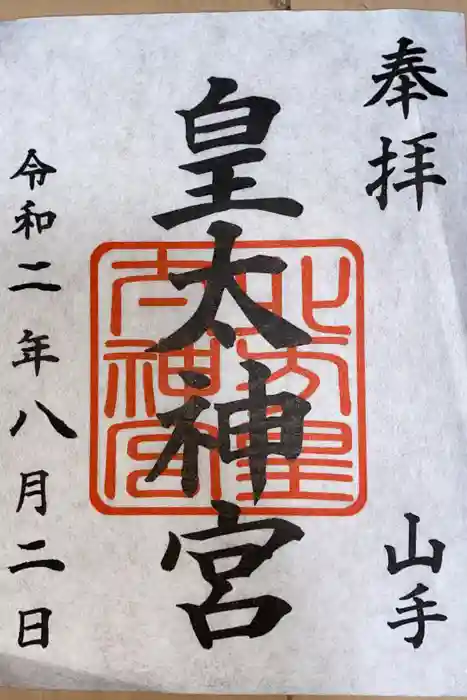 奉拝
山手
皇太神宮
北方皇太神宮
令和二年八月二日